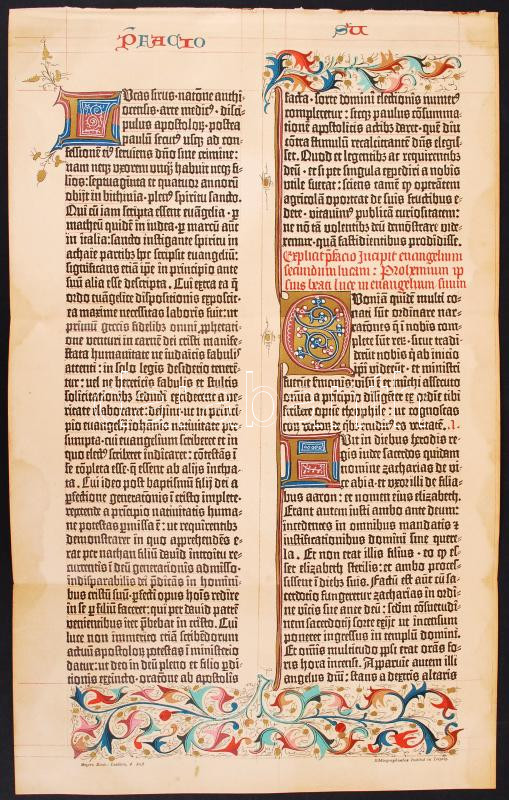 PREFACIO
SU
Lucas sirus · natōne anthi-
ocensis · arte medicꝰ · disci-
pulus apostoloꝝ · postea
paulū secutꝰ usqꝫ ad con-
fessionē eiꝰ serviens dn̄o sine crimine:
nam neqꝫ uxorem unqꝫ habuit neqꝫ fi-
lios: septuaginta et quatuor annorū
obijt in bithinia · plenꝰ spiritu sancto.
Qui cū iam scripta essent euāgelia · ꝑ
matheū quidē in iudea · ꝑ marcū autē
in italia: sancto instigante spiritu in
achaie partibꝫ hoc scripsit euangeliū:
significans etiā ip̄e in principio ante
suū alia esse descripta. Cui extra ea q̄
ordo euāgelice dispositionis exposcit ·
ea maxime necessitas laboris fuit: ut
primū grecis fidelibꝫ omni ꝓphetati-
one venturi in carnē dei cristi manife-
stata humanitate ne iudaicis fabulis
attenti: in solo legis desiderio tenerē-
tur: vel ne hereticis fabulis et stultis
solicitationibꝫ seducti exciderent a ve-
ritate elaboraret: dehinc · ut in princi-
pio euangelij iohānis nativitate pre-
sumpta · cui euangelium scriberet et in
quo electꝰ scriberet indicaret: cōtestās ī
se cōpleta esse · q̄ essent ab alijs inchoa-
ta. Cui ideo post baptismū filij dei a
ꝑfectione generationis ī cristo implete ·
repetende a principio nativitatis huma-
ne potestas ꝑmissa ē: ut requirentibꝫ
demonstraret in quo apprehendēs e-
rat per nathan filiū david introitu re-
currentis ī deū generationis admisso ·
indisparabilis dei p̄dicās in homini-
bus cristū suū · ꝑfecti opus hoīs redire
in se ꝑ filiū faceret: qui per david patrē
venientibus iter p̄bebat in cristo. Cui
luce non immerito etiā scribēdorum
actuū apostoloꝝ potestas ī ministerio
datur: ut deo in deū pleno et filio ꝓdi-
tionis extincto · oratōne ab apostolis
facta · sorte domini electionis numerꝰ
compleretur: sicqꝫ paulus cōsumma-
tionē apostolicis actibꝫ daret · quē diu
cōtra stimulū recalcitrantē dn̄s elegis-
set. Quod et legentibꝫ ac requirentibꝫ
deū · etsi per singula expediri a nobis
utile fuerat: sciens tamē qꝫ operantem
agricolā oporteat de suis fructibus e-
dere · vitavimꝰ publicā curiositatem:
ne nō tā volentibꝫ deū demonstrare vi-
deremur · quā fastidientibus prodidisse.
Explicit p̄facio Incipit euangelium
secundum lucam: Prohemium ip-
sius beati luce in euangelium suum
Quoniā quidē multi co-
nati sūt ordinare nar-
rationes q̄ in nobis com-
plete sūt reꝝ · sicut tradi-
derūt nobis q̄ ab inicio
ip̄i viderūt · et ministri
fuerūt sermonis: visū ē et michi assecuto
omnia a principio diligēter ex ordine tibi
scribere optime theophile: ut cognoscas
eoꝝ verboꝝ de qibꝫ eruditus es veritatē. I.
Fuit in diebus herodis re-
gis iude sacerdos quidam
nomine zacharias de vi-
ce abia · et uxor illi de filia-
bus aaron: et nomen eius elizabeth.
Erant autem iusti ambo ante deum:
incedentes in omnibus mandatis et
iustificationibus domini sine quere-
la. Et non erat illis filius · eo qꝫ es-
set elizabeth sterilis: et ambo proces-
sissent ī diebꝫ suis. Factū est autē cū sa-
cerdotio fungeretur zacharias in ordi-
ne vicis sue ante deū: scdm cōsuetudi-
nem sacerdotij sorte exijt ut incensum
poneret ingressus in templū domini.
Et om̄is multitudo ppl̄i erat orās fo-
ris hora incensi. Apparuit autem illi
angelus dn̄i: stans a dextris altaris
Meyers Konv.-Lexikon, 6. Aufl.
Bibliographisches Institut in Leipzig.